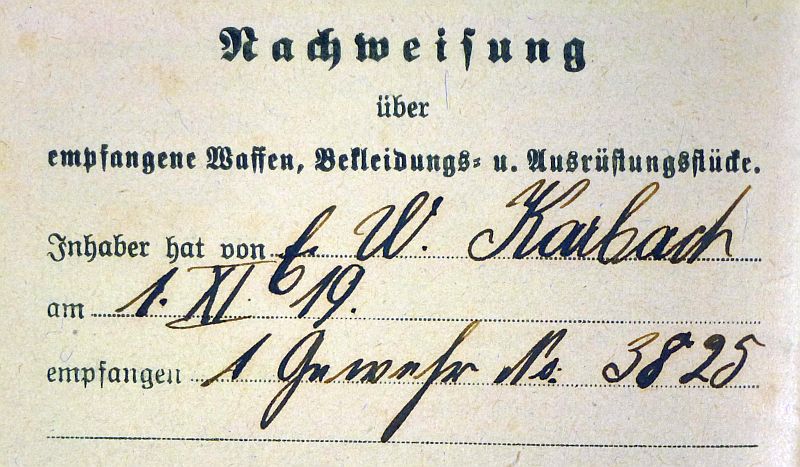 Nachweisung
über
empfangene Waffen, Bekleidungs- u. Ausrüstungsstücke.
Inhaber hat von E. W. Karbach
am 1. XI 19.
empfangen 1 Gewehr No. 3825